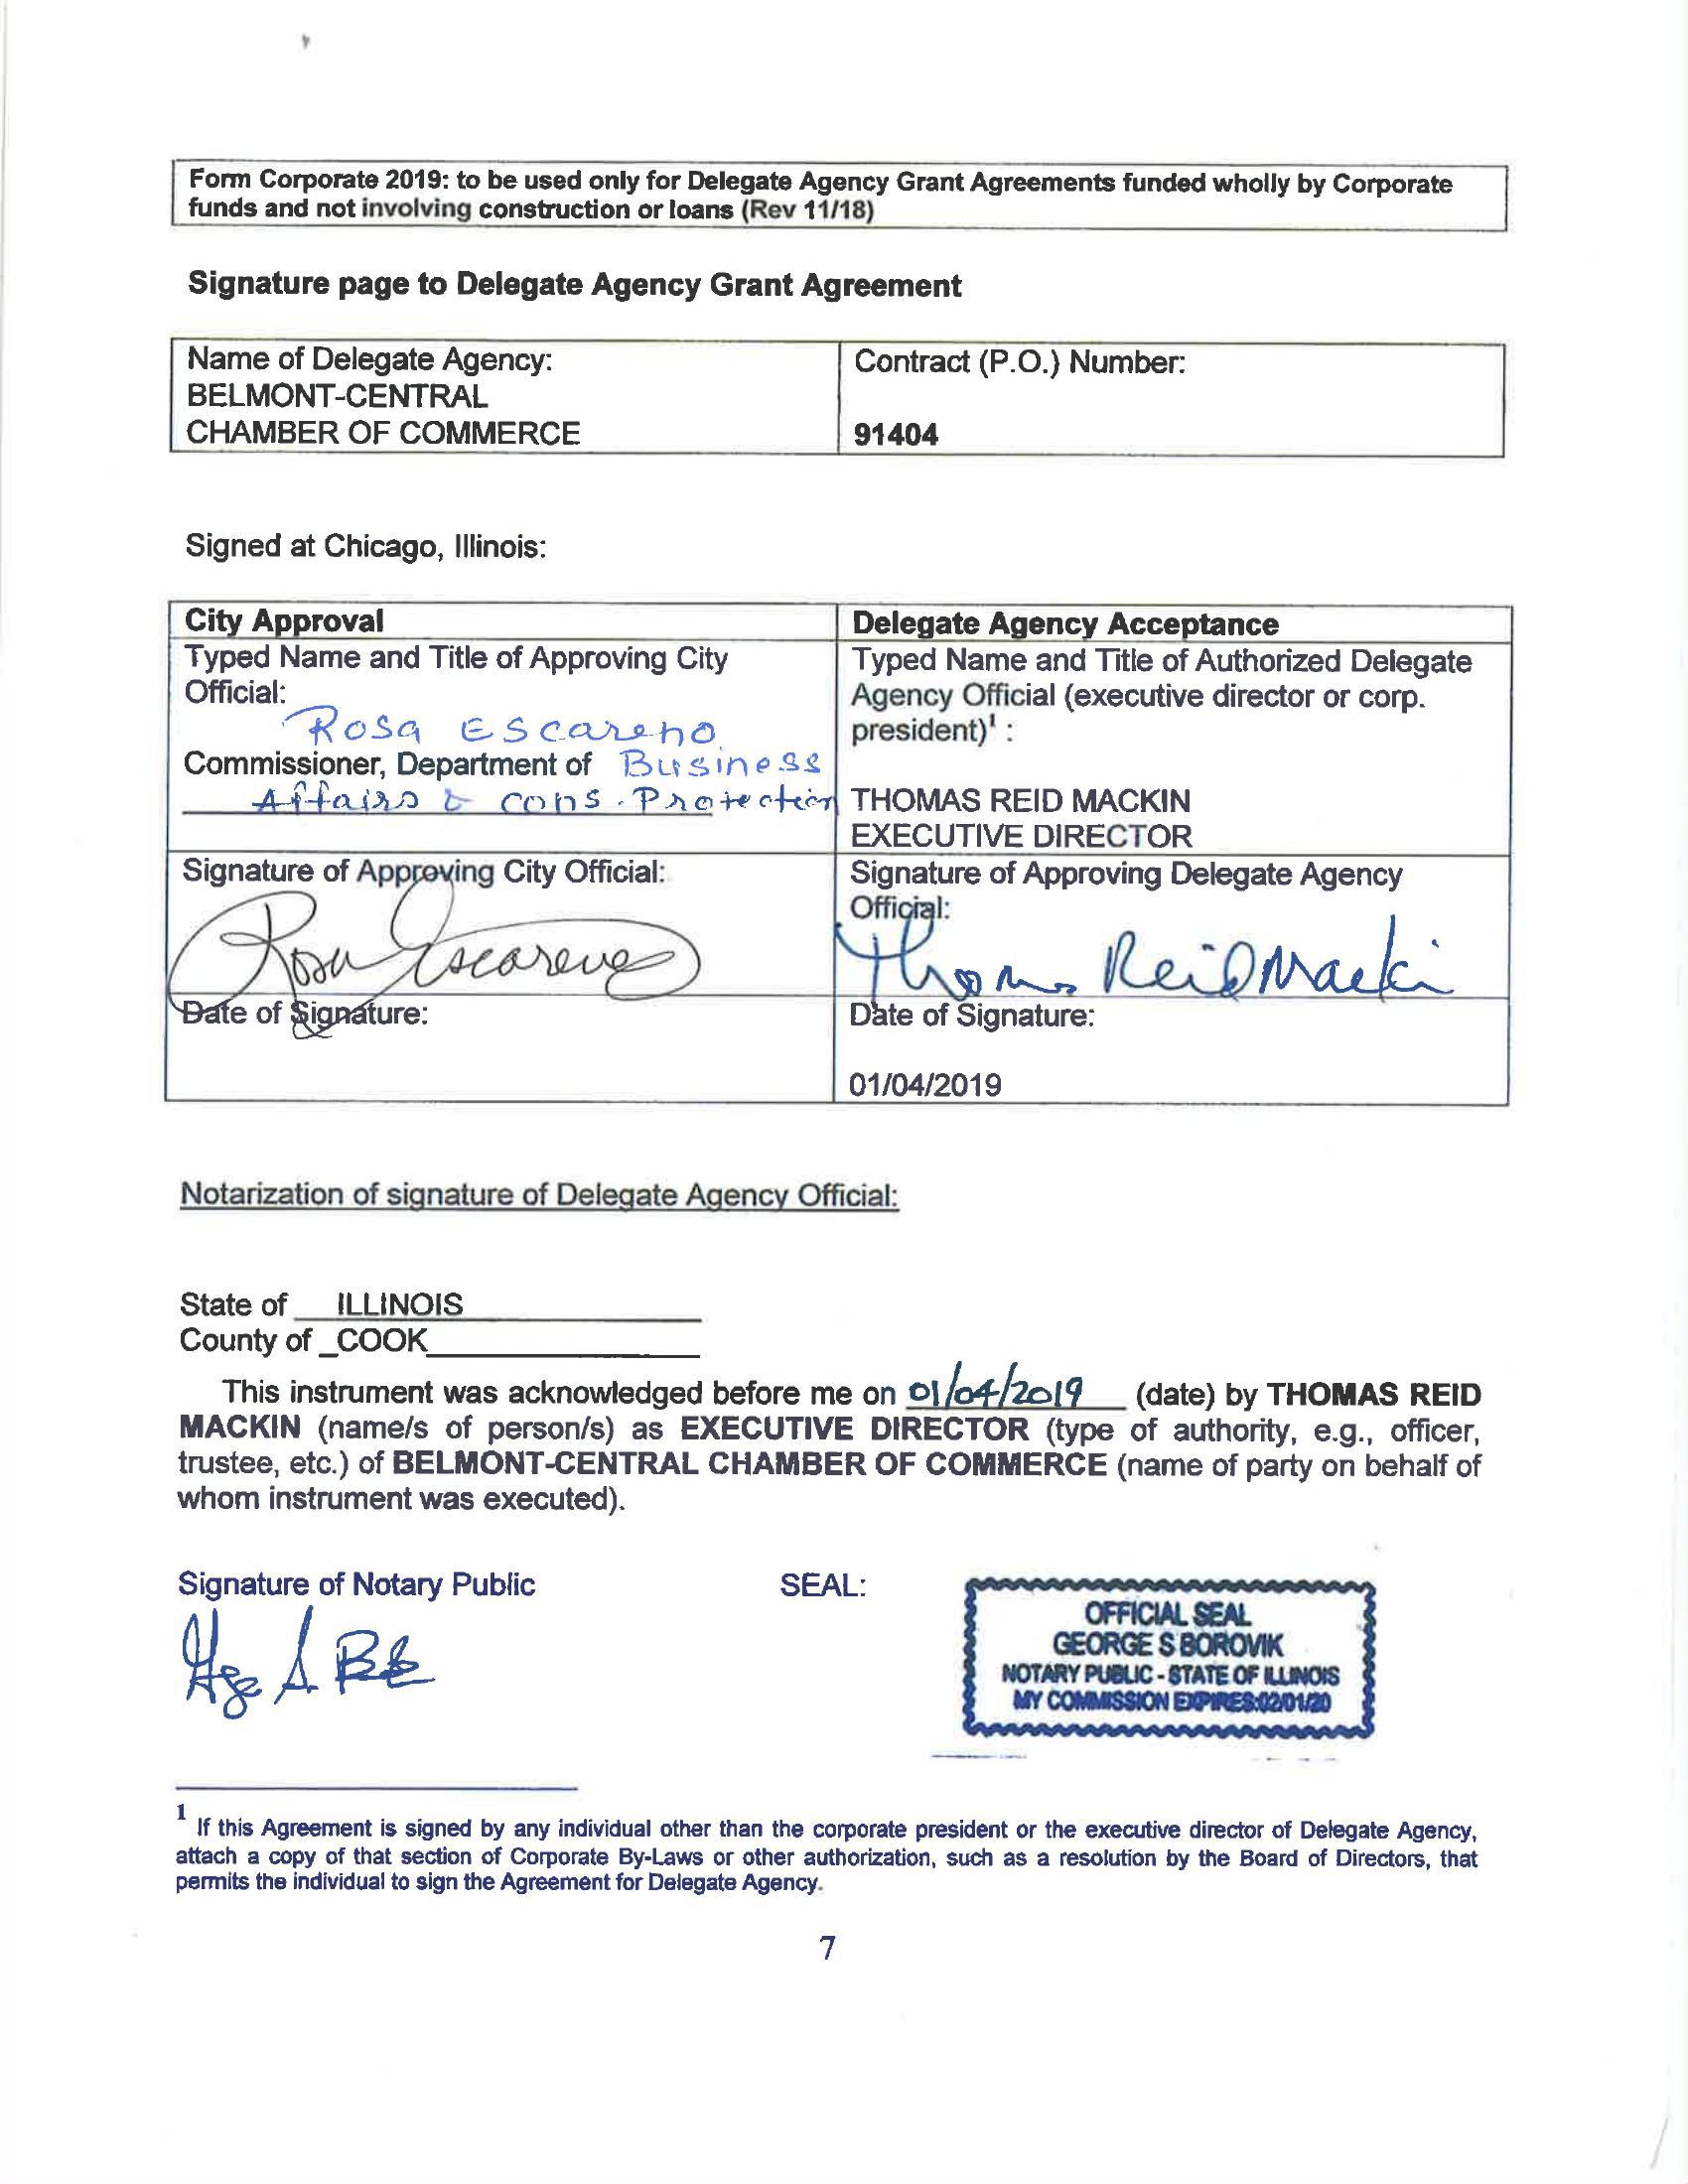 Form Corporate 2019: to be used only for Delegate Agency Grant Agreements funded wholly by Corporate
funds and not involving construction or loans (Rev 11/18)
Signature page to Delegate Agency Grant Agreement
Name of Delegate Agency:
BELMONT-CENTRAL
CHAMBER OF COMMERCE
Contract (P.O.) Number:
91404
Signed at Chicago, Illinois:
City Approval
Typed Name and Title of Approving City
Official:
Rosa Escareno
Commissioner, Department of Business
Affairs & Cons. Protection
Delegate Agency Acceptance
Typed Name and Title of Authorized Delegate
Agency Official (executive director or corp.
president)¹ :
THOMAS REID MACKIN
EXECUTIVE DIRECTOR
Signature of Approving City Official:
Rosa Escareno
Date of Signature:
Signature of Approving Delegate Agency
Official:
Thomas Reid Mackin
Date of Signature:
01/04/2019
Notarization of signature of Delegate Agency Official:
State of ILLINOIS
County of _COOK
This instrument was acknowledged before me on 01/04/2019 (date) by THOMAS REID
MACKIN (name/s of person/s) as EXECUTIVE DIRECTOR (type of authority, e.g., officer,
trustee, etc.) of BELMONT-CENTRAL CHAMBER OF COMMERCE (name of party on behalf of
whom instrument was executed).
Signature of Notary Public
SEAL:
OFFICIAL SEAL
GEORGE S BOROVIK
NOTARY PUBLIC - STATE OF ILLINOIS
MY COMMISSION EXPIRES:02/01/20
1 If this Agreement is signed by any individual other than the corporate president or the executive director of Delegate Agency,
attach a copy of that section of Corporate By-Laws or other authorization, such as a resolution by the Board of Directors, that
permits the individual to sign the Agreement for Delegate Agency.
7